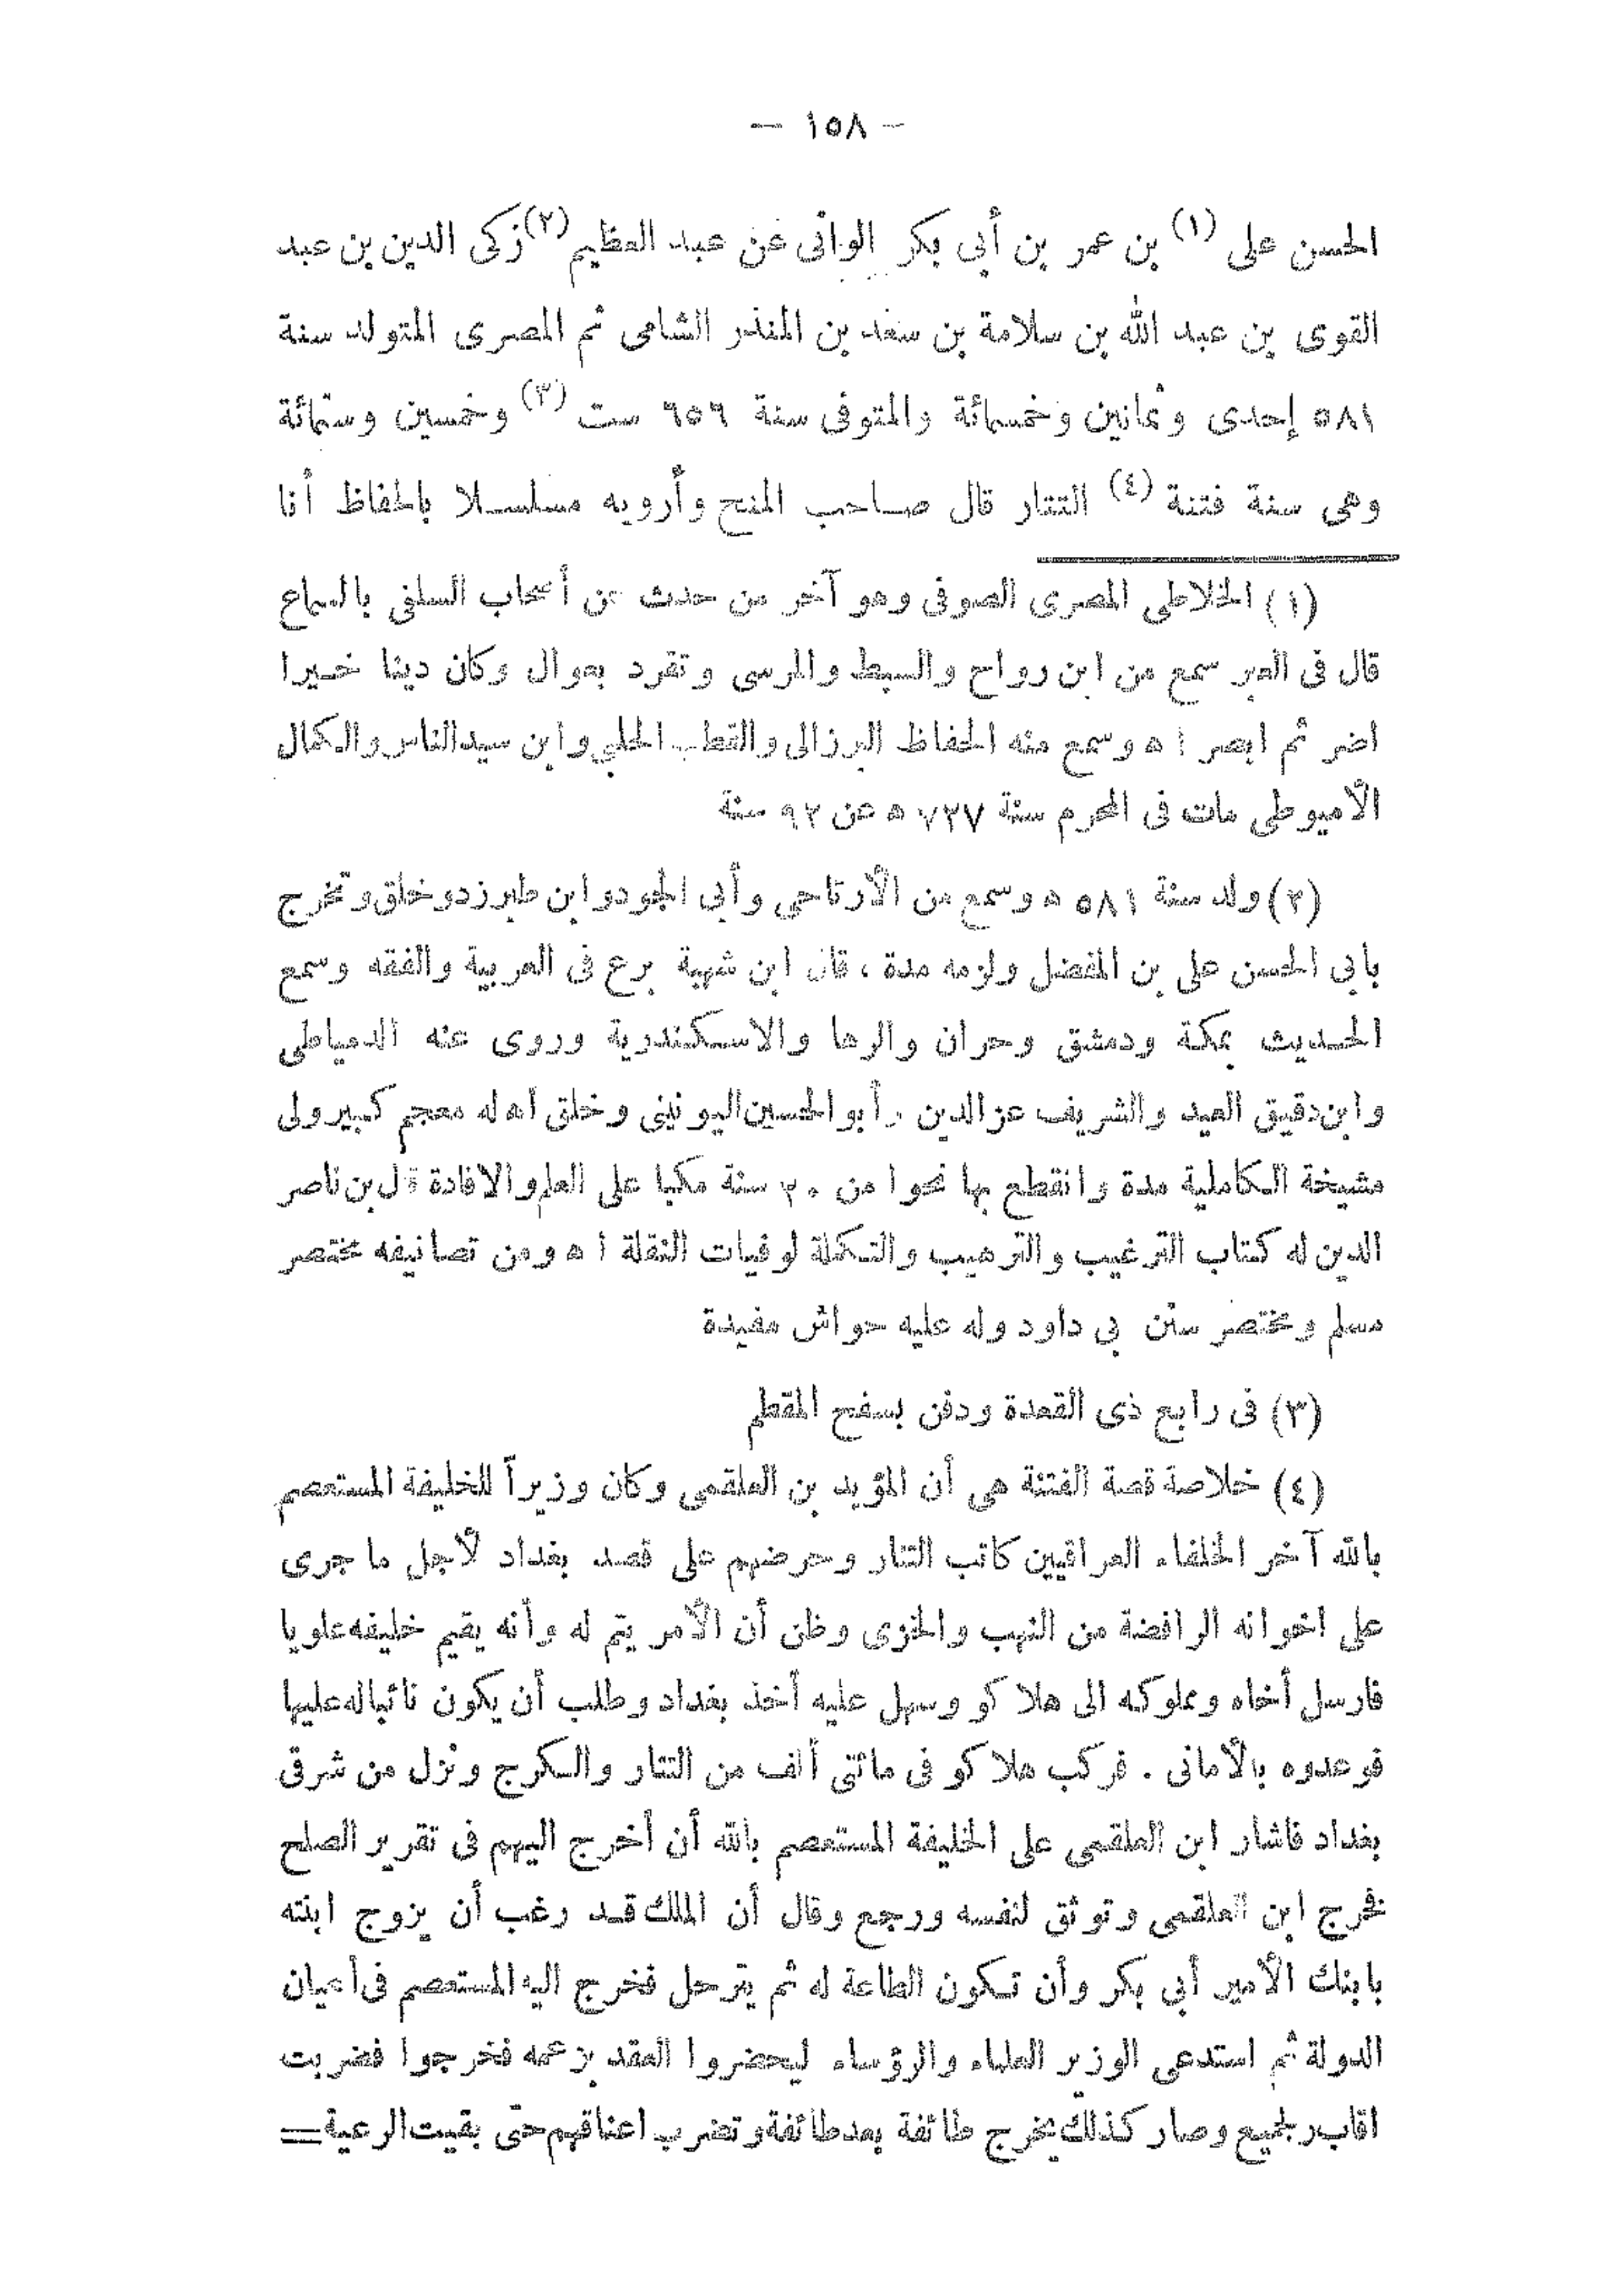 — ١٥٨ —
الحسن على (١) بن عمر بن أبى بكر الوانى عن عبد العظيم (٢) زكى الدين بن عبد
القوى بن عبد الله بن سلامة بن سعد بن المنذر الشامى ثم المصرى المتولد سنة
٥٨١ إحدى وثمانين وخمسمائة والمتوفى سنة ٦٥٦ ست (٣) وخمسين وستمائة
وهى سنة فتنة (٤) التتار قال صاحب المنح وأرويه مسلسلا بالحفاظ أنا
(١) الخلاطى المصرى الصوفى وهو آخر من حدث عن أصحاب السلفى بالسماع
قال فى العبر سمع من ابن رواح والسبط والمرسى وتفرد بعوال وكان دينا خيرا
اضر ثم ابصر ا ه وسمع منه الحفاظ البرزالى والقطب الحلبي وابن سيد الناس والكمال
الأميوطى مات فى المحرم سنة ٧٢٧ ه عن ٩٢ سنة
(٢) ولد سنة ٥٨١ ه وسمع من الأرتاحى وأبى الجود وابن طبرزد وخلق وتخرج
بابى الحسن على بن المفضل ولزمه مدة ، قال ابن شهبة برع فى العربية والفقه وسمع
الحديث بمكة ودمشق وحران والرها والاسكندرية وروى عنه الدمياطى
وابن دقيق العيد والشريف عز الدين وأبو الحسين اليونينى وخلق اه له معجم كبير ولى
مشيخة الكاملية مدة وانقطع بها نحوا من ٢٠ سنة مكبا على العلم والافادة قال بن ناصر
الدين له كتاب الترغيب والترهيب والتكملة لوفيات النقلة ا ه ومن تصانيفه مختصر
مسلم ومختصر سنن بى داود وله عليه حواش مفيدة
(٣) فى رابع ذى القعدة ودفن بسفح المقطم
(٤) خلاصة قصة الفتنة هى أن المؤيد بن العلقمى وكان وزيراً للخليفة المستعصم
بالله آخر الخلفاء العراقيين كاتب التتار وحرضهم على قصد بغداد لأجل ما جرى
على اخوانه الرافضة من النهب والخزى وظن أن الأمر يتم له وأنه يقيم خليفه علويا
فارسل أخاه ومملوكه الى هلاكو وسهل عليه أخذ بغداد وطلب أن يكون نائبا له عليها
فوعدوه بالأمانى . فركب هلاكو فى مائتى ألف من التتار والكرج ونزل من شرقى
بغداد فاشار ابن العلقمى على الخليفة المستعصم بالله أن أخرج اليهم فى تقرير الصلح
فخرج ابن العلقمى وتوثق لنفسه ورجع وقال أن الملك قد رغب أن يزوج ابنته
بابنك الأمير أبى بكر وأن تكون الطاعة له ثم يترحل فخرج اليه المستعصم فى أعيان
الدولة ثم استدعى الوزير العلماء والرؤساء ليحضروا العقد بزعمه فخرجوا فضربت
رقاب الجميع وصار كذلك يخرج طائفة بعد طائفة وتضرب اعناقهم حتى بقيت الرعية =